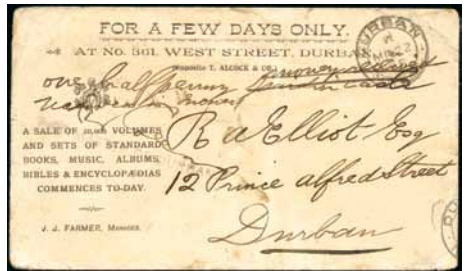 FOR A FEW DAYS ONLY.
AT No. 361, WEST STREET, DURBAN
(Opposite T. ALCOCK & CO.)
DURBAN
22
one half penny
money
A SALE OF 10,000 VOLUMES
AND SETS OF STANDARD
BOOKS, MUSIC, ALBUMS,
BIBLES & ENCYCLOPÆDIAS
COMMENCES TO-DAY.
J. J. FARMER, Manager.
R A Elliot Esq
12 Prince alfred Street
Durban